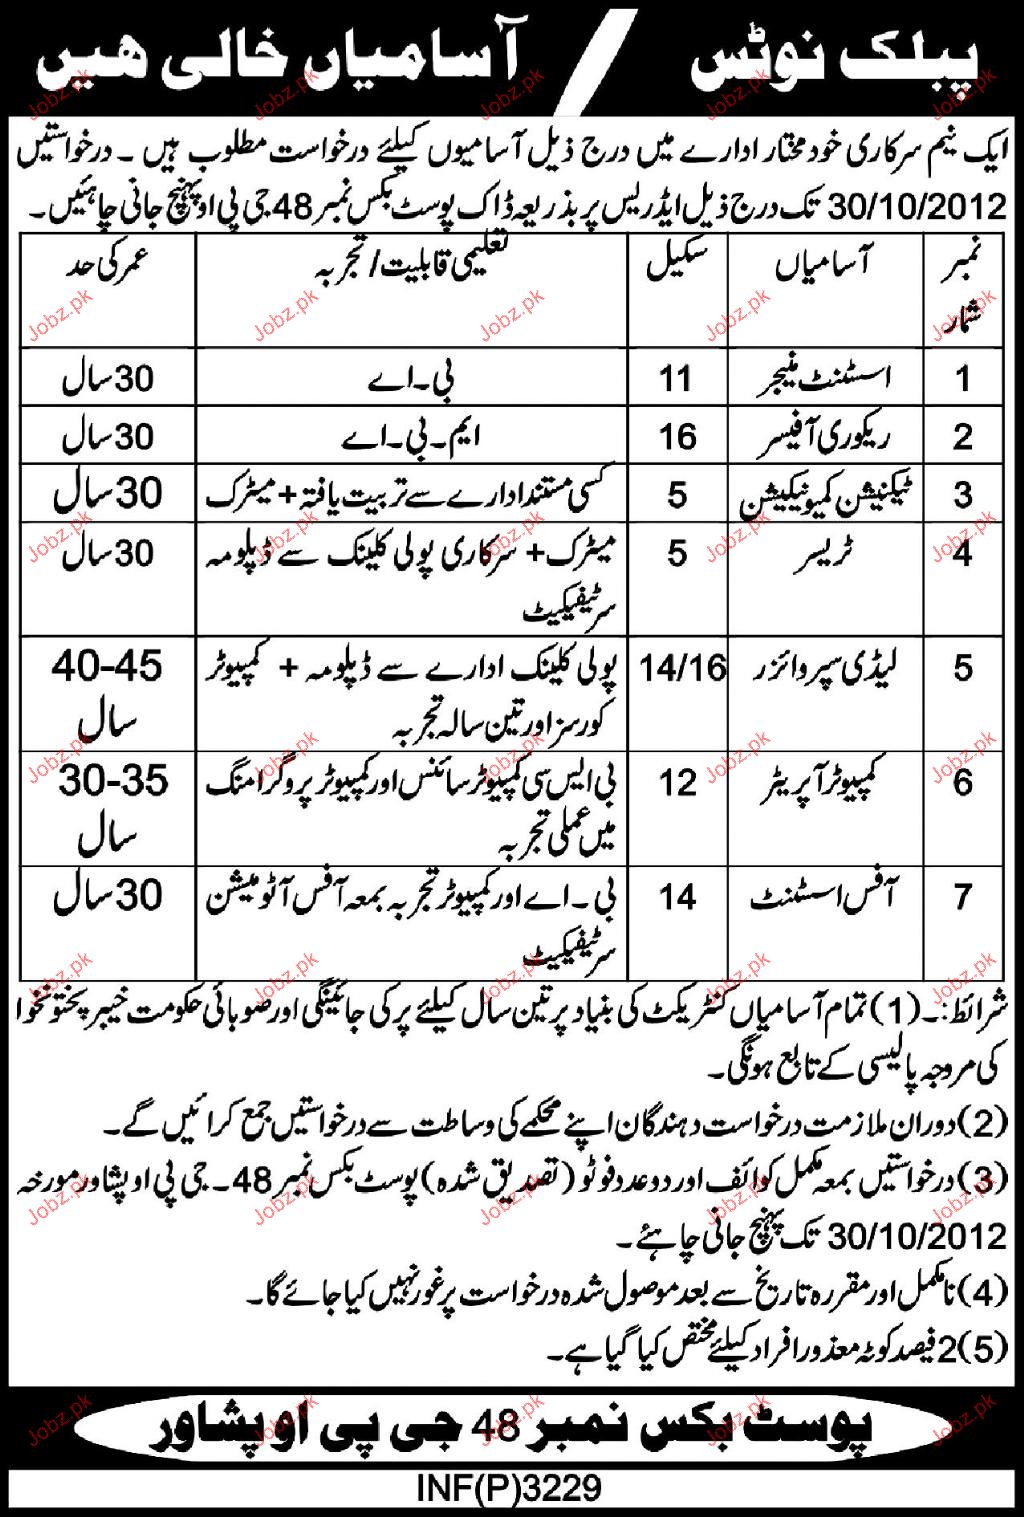 پبلک نوٹس / آسامیاں خالی ھیں
ایک نیم سرکاری خودمختار ادارے میں درج ذیل آسامیوں کیلئے درخواست مطلوب ہیں۔ درخواستیں
30/10/2012 تک درج ذیل ایڈریس پر بذریعہ ڈاک پوسٹ بکس نمبر 48 جی پی او پہنچ جانی چاہئیں۔
نمبر شمار آسامیاں سکیل تعلیمی قابلیت/تجربہ عمر کی حد
1 اسسٹنٹ منیجر 11 بی۔اے 30 سال
2 ریکوری آفیسر 16 ایم۔بی۔اے 30 سال
3 ٹیکنیشن کمیونیکیشن 5 کسی مستند ادارے سے تربیت یافتہ + میٹرک 30 سال
4 ٹریسر 5 میٹرک + سرکاری پولی کلینک سے ڈپلومہ 30 سال
سرٹیفیکیٹ
5 لیڈی سپروائزر 14/16 پولی کلینک ادارے سے ڈپلومہ + کمپیوٹر 40-45
کورسز اور تین سالہ تجربہ سال
6 کمپیوٹر آپریٹر 12 بی ایس سی کمپیوٹر سائنس اور کمپیوٹر پروگرامنگ 30-35
میں عملی تجربہ سال
7 آفس اسسٹنٹ 14 بی۔اے اور کمپیوٹر تجربہ بمعہ آفس آٹومیشن 30 سال
سرٹیفیکیٹ
شرائط:۔ (1) تمام آسامیاں کنٹریکٹ کی بنیاد پر تین سال کیلئے پر کی جائینگی اور صوبائی حکومت خیبر پختونخوا
کی مروجہ پالیسی کے تابع ہونگی۔
(2) دوران ملازمت درخواست دہندگان اپنے محکمے کی وساطت سے درخواستیں جمع کرائیں گے۔
(3) درخواستیں بمعہ مکمل کوائف اور دو عدد فوٹو (تصدیق شدہ) پوسٹ بکس نمبر 48۔ جی پی او پشاور مورخہ
30/10/2012 تک پہنچ جانی چاہئے۔
(4) نامکمل اور مقررہ تاریخ سے بعد موصول شدہ درخواست پر غور نہیں کیا جائے گا۔
(5) 2 فیصد کوٹہ معذور افراد کیلئے مختص کیا گیا ہے۔
پوسٹ بکس نمبر 48 جی پی او پشاور
INF(P)3229
Jobz.pk